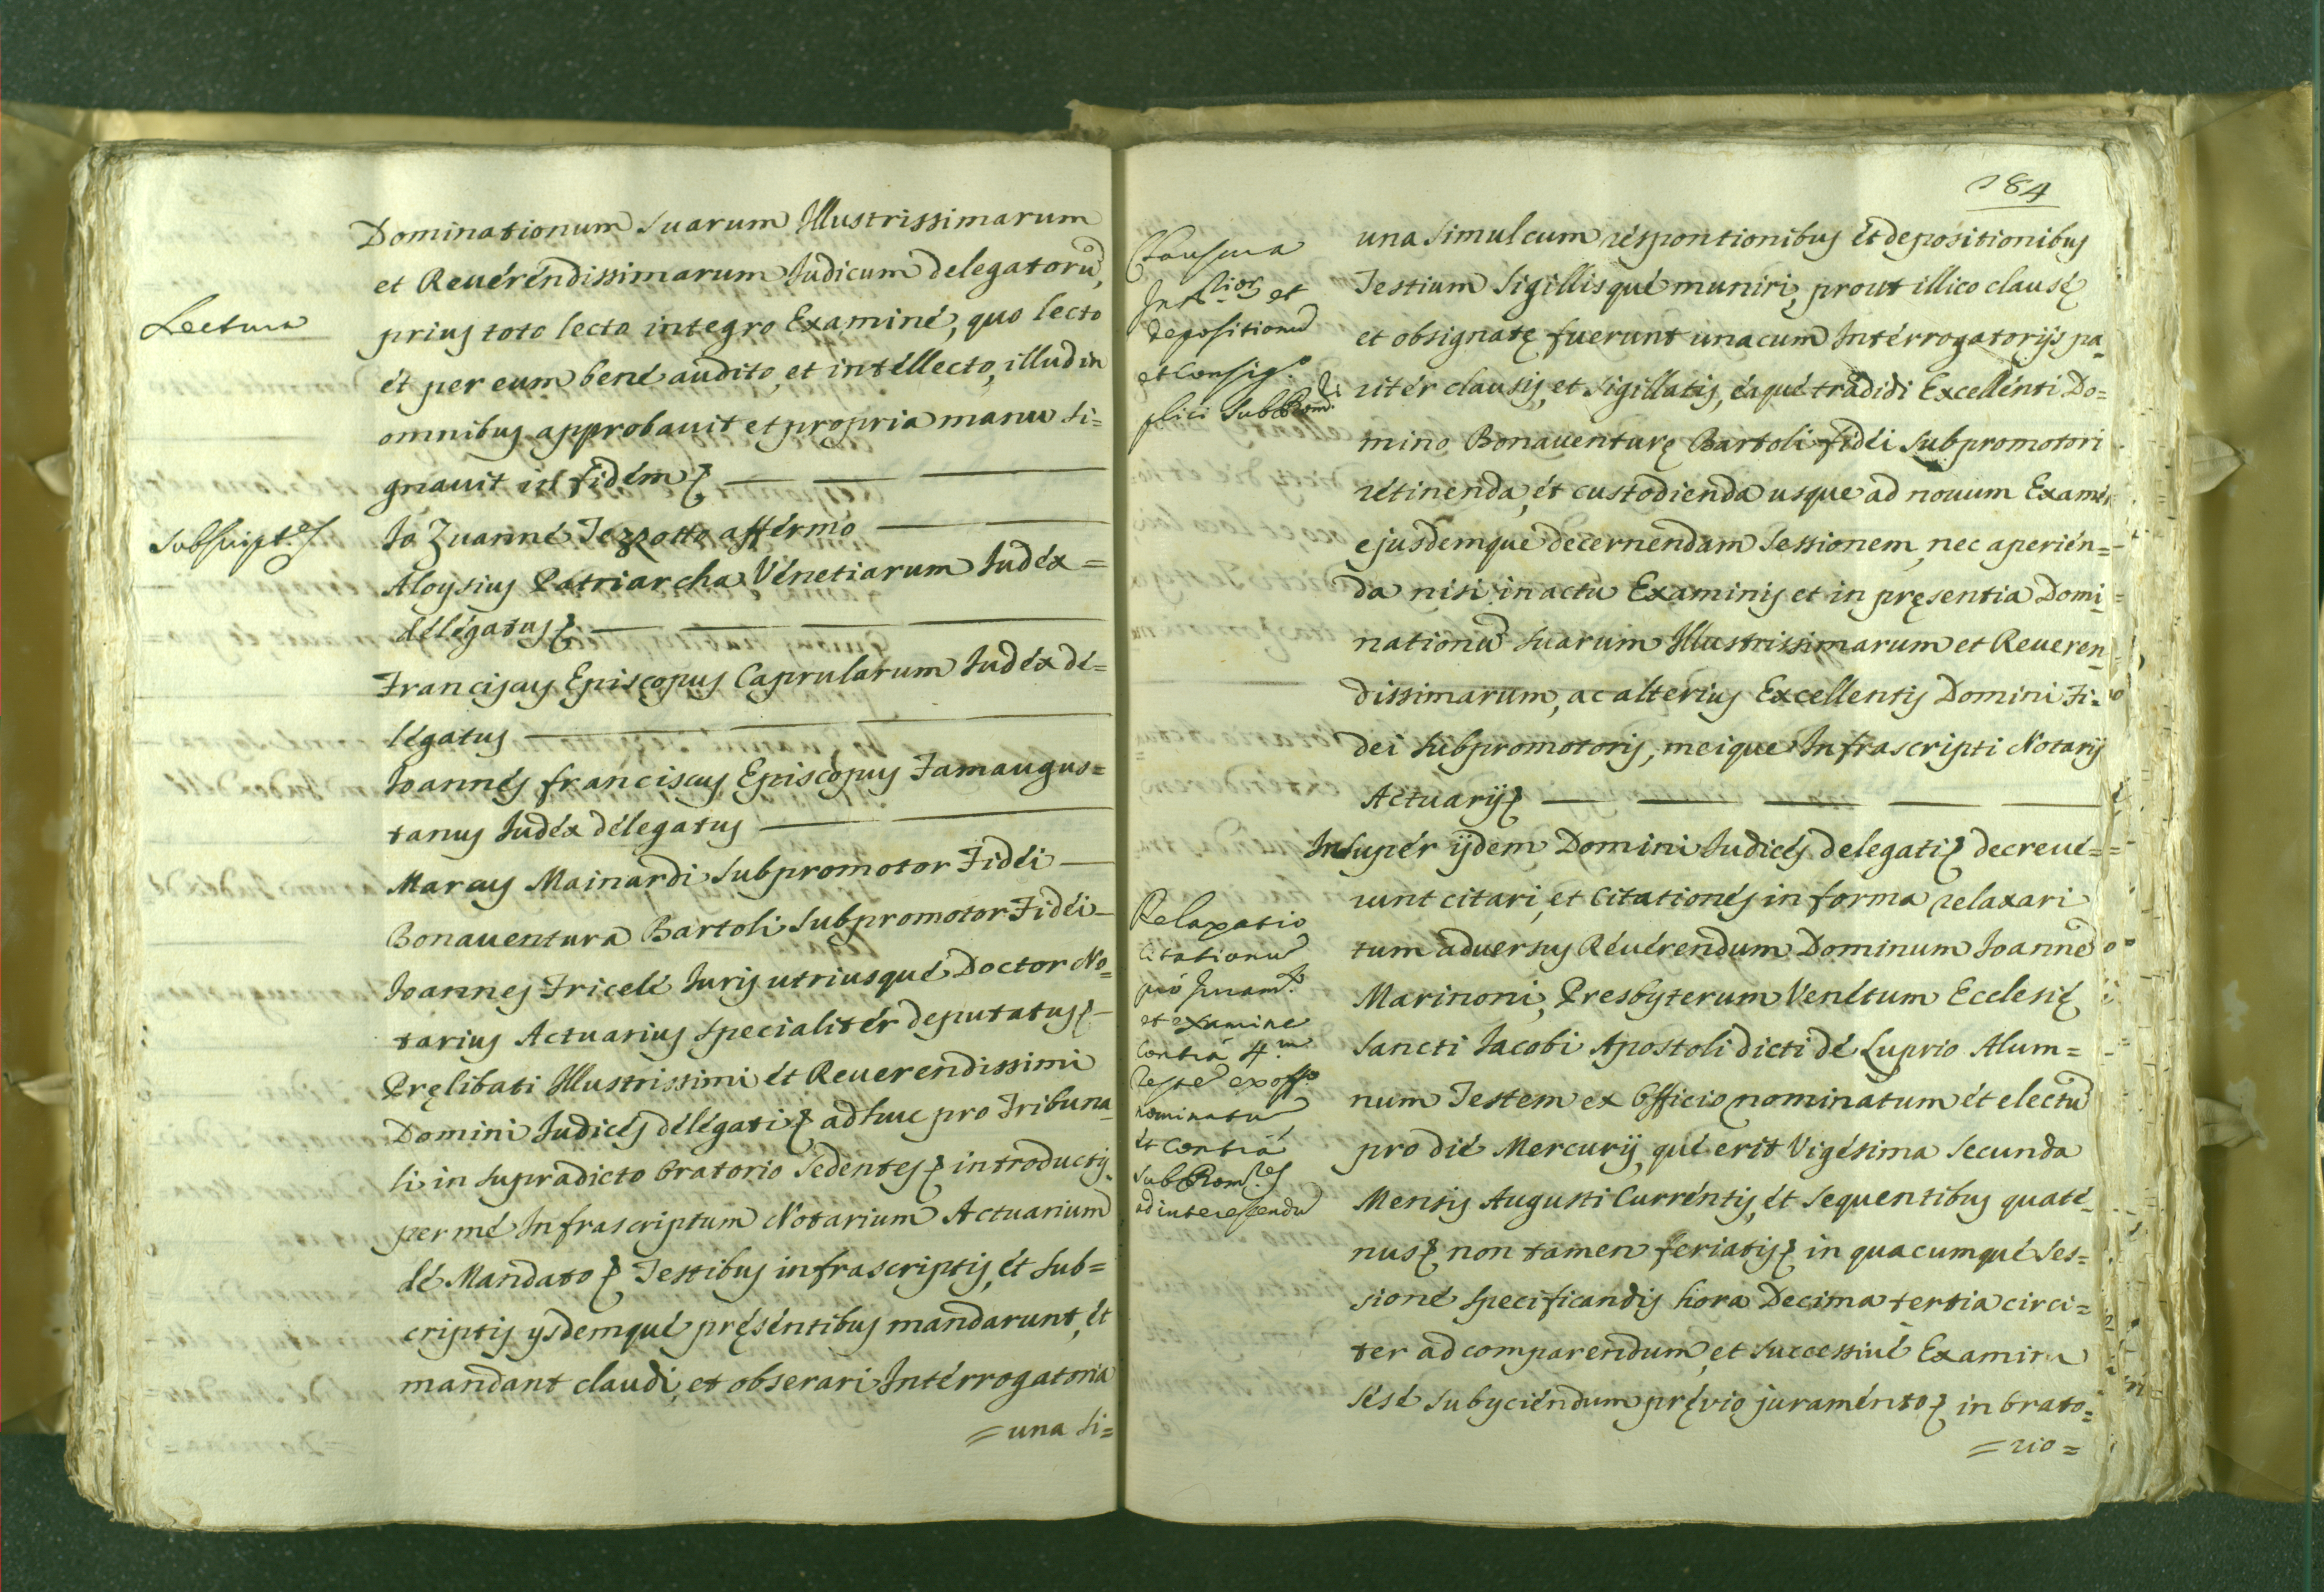 Dominationum Suarum Illustrissimarum
et Reuérendissimarum Iudicum delegatorũ,
Lectura
prius toto lecto integro Examiné, quo lecto
ét per eum bené audito, et intéllecto, illud in
omnibus approbauit et propria manu si=
gnauit in fidém
Subscript.es
Io Zuanné Tezzotto afférmo
Aloysius Patriarcha Vénetiarum Iudéx =
délégatus
Franciscus Episcopus Caprularum Iudéx dé=
légatus
Ioannés franciscus Episcopus Famaugus=
tanus Iudéx délegatus
Marcus Mainardi Subpromotor Fidéi
Bonauentura Bartoli Subpromotor Fidéi
Ioannes Fricelé Iuris utriusqué Doctor No=
tarius Actuarius specialitér deputatus
Pręlibati Illustrissimi ét Reuerendissimi
Domini Iudicés délégati adhuc pro Tribuna=
li in supradicto Oratorio Sedentes introductis
per mé Infrascriptum Notarium Actuarium
dé Mandato Testibus infrascriptis, ét Sub=
criptis ysdemqué présentibus mandarunt, ét
mandant claudi, et obserari Intérrogatoria
= una si=
184
Clausura
Int.tior. et
depositionũ
et Consig.o
plici SubProm.ri
una simul cum résponsionibus ét depositionibus
Testium Sigillisqué muniri, prout illico clausę
et obsignatę fuerunt una cum Intérrogatorijs pa=
ritér clausis, et sigillatis, éaqué tradidi Excellénti Do=
mino Bonauenturę Bartoli fidéi Subpromotori
rétinenda, ét custodienda usque ad nouum Examén
ejusdemqué decernendam Sessionem, nec aperién=
da nisi in actu Examinis et in pręsentia Domi=
nationũ Suarum Illustrissimarum et Reueren=
dissimarum, ac alterius Excellentis Domini Fi=
dei Subpromotoris, meique Infrascripti Notarij
Actuarij
Insupér ijdem Domini Iudicés delegati decreué=
runt citari, et Citationés in forma relaxari
Relaxatio
Citationũ
pro Juram.to
et examine
Contrà 4.m
Testẽ ex off.o
nominatũ
ét Contrà
SubProm.res
ad interessendũ
tum aduersus Réuérendum Dominum Ioannẽ
Marinoni, Presbyterum Venétum Ecclesię
Sancti Iacobi Apostoli dicti dé Luprio Alum=
num Testem ex Officio nominatum ét electũ
pro dié Mercurij, qué erit Vigésima Secunda
Mensis Augusti Curréntis, ét Sequentibus quaté=
nus non tamen feriatis in quacumqué Ses=
sioné specificandis hora Decima tertia circi=
ter ad comparendum, et successiué Examini
sésé subyciéndum prévio juraménto in Orato=
= rio =